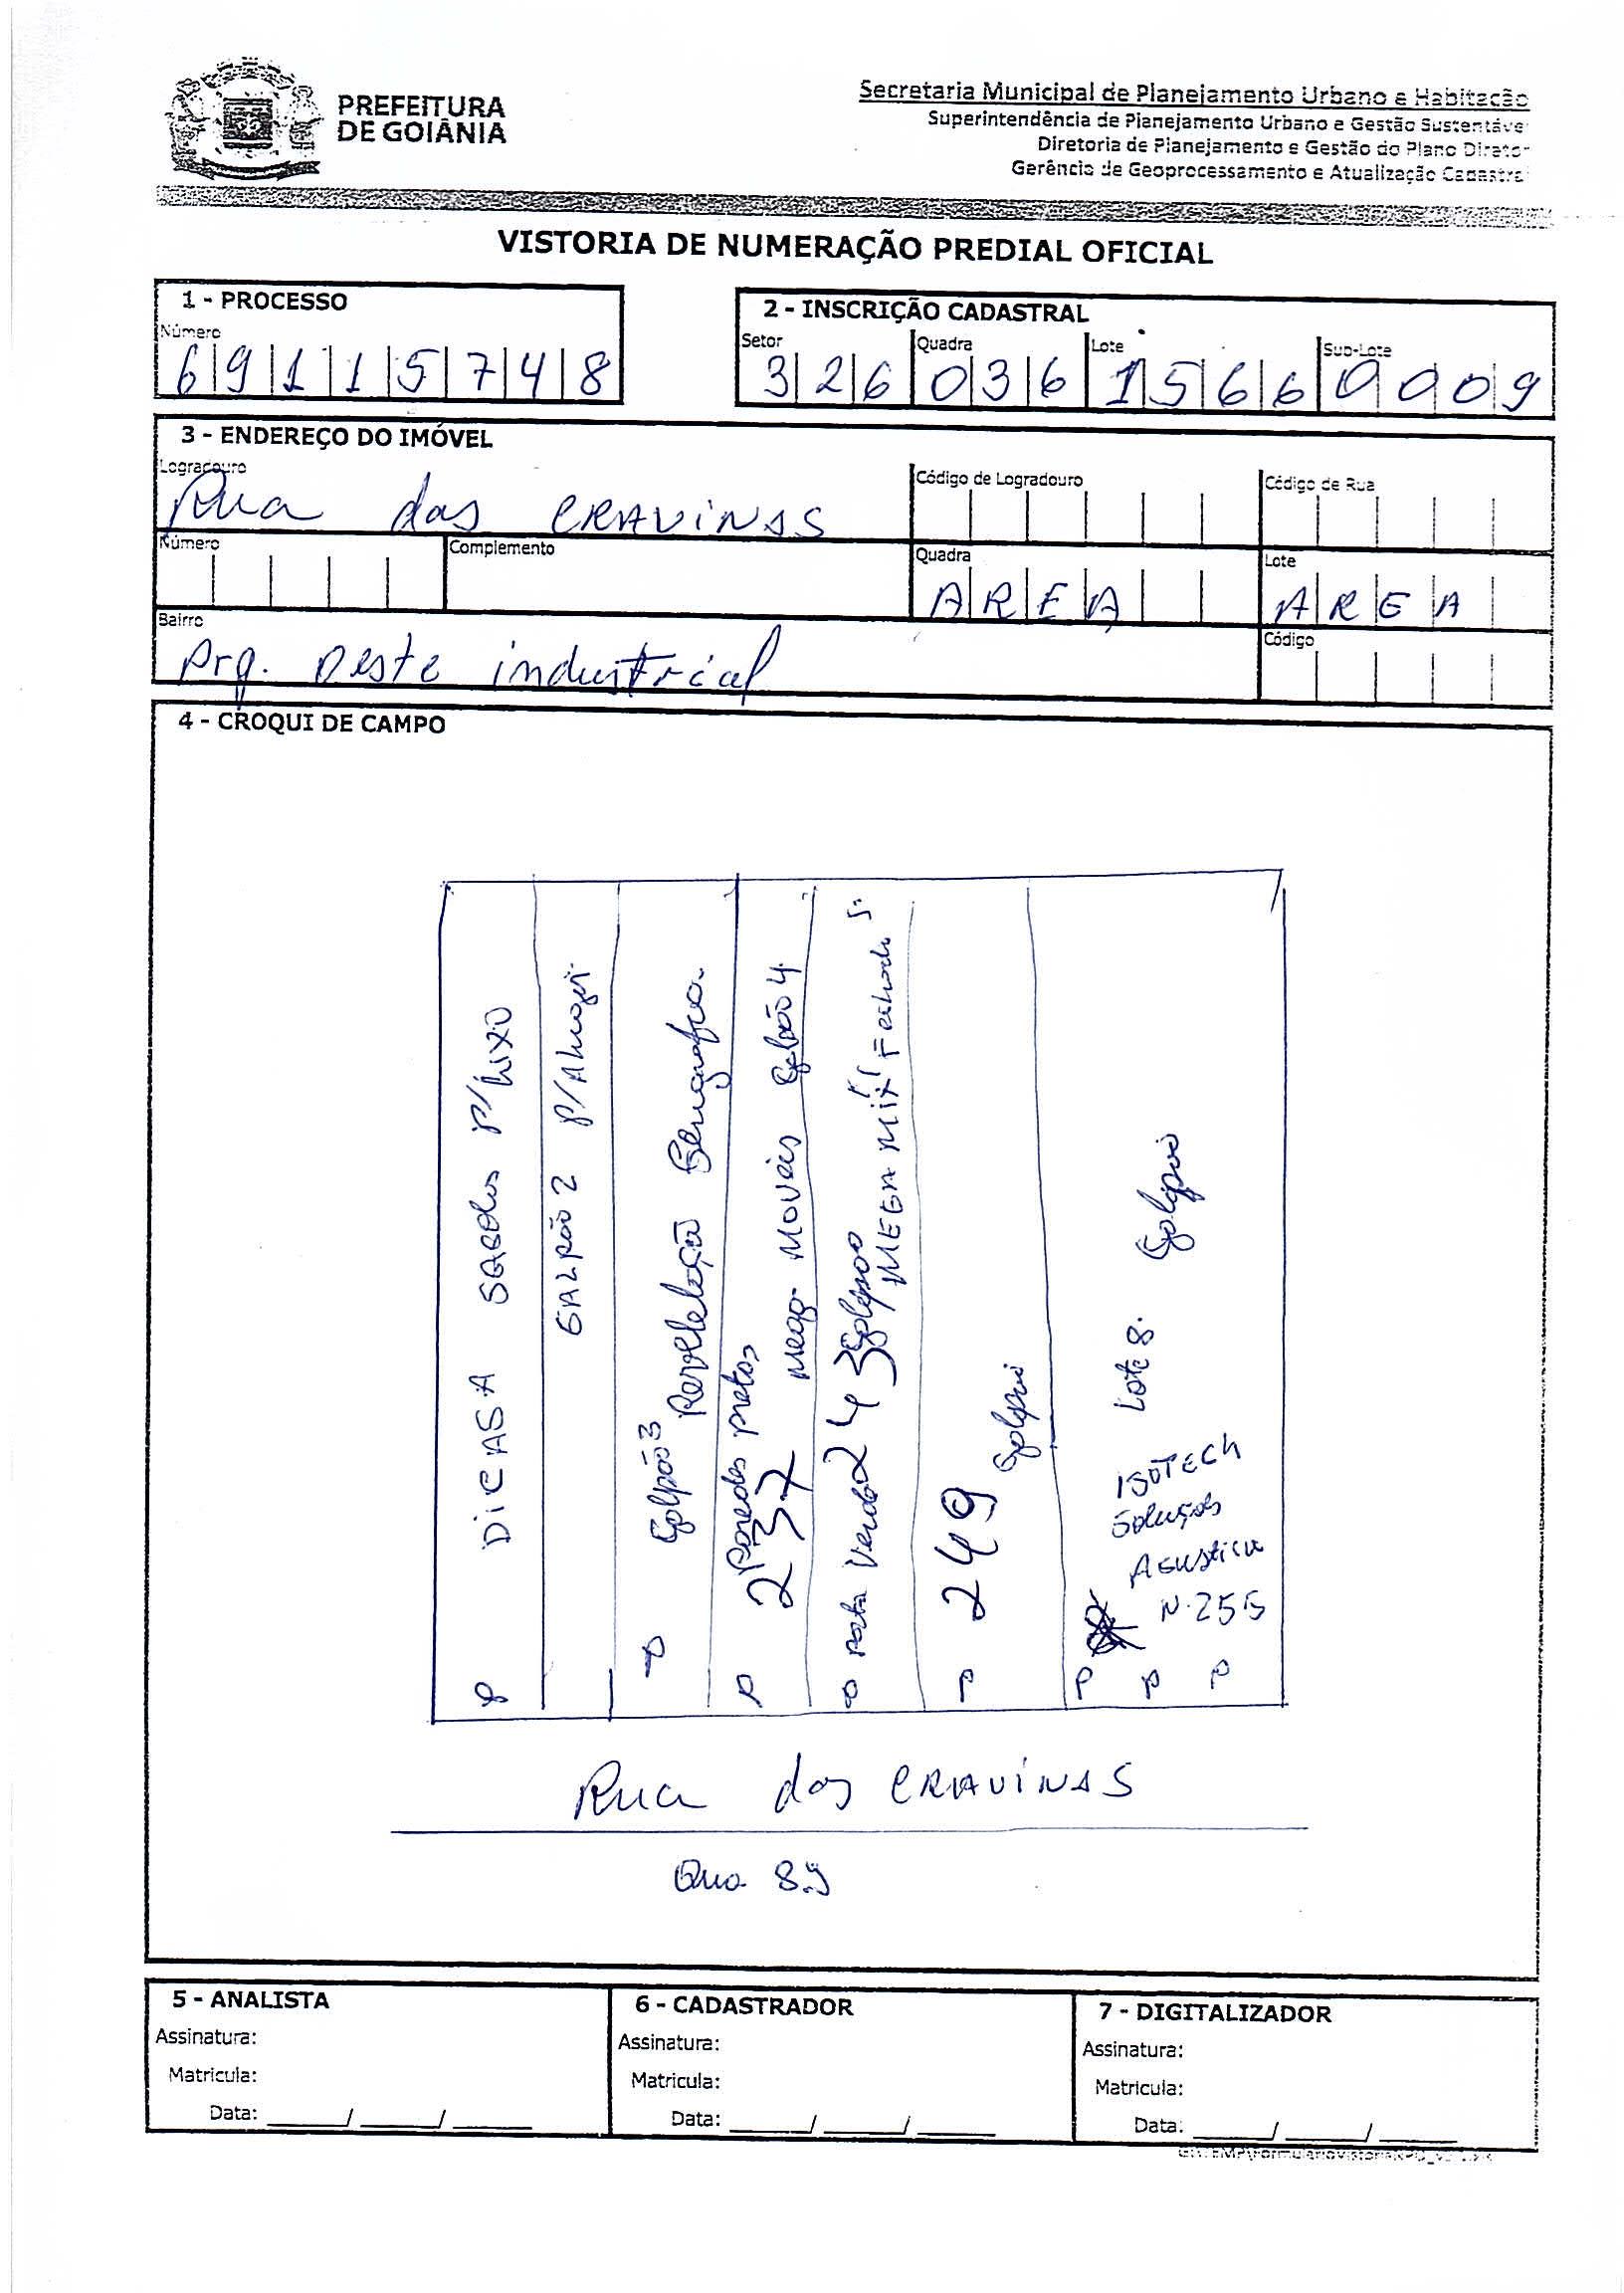 PREFEITURA
DE GOIÂNIA
Secretaria Municipal de Planejamento Urbano e Habitação
Superintendência de Planejamento Urbano e Gestão Sustentável
Diretoria de Planejamento e Gestão do Plano Diretor
Gerência de Geoprocessamento e Atualização Cadastral
VISTORIA DE NUMERAÇÃO PREDIAL OFICIAL
1 - PROCESSO
Número
69115748
2 - INSCRIÇÃO CADASTRAL
Setor Quadra Lote Sub-Lote
326 036 1566 0009
3 - ENDEREÇO DO IMÓVEL
Logradouro Código de Logradouro Código de Rua
Rua das CRAVINAS
Número Complemento Quadra Lote
AREA AREA
Bairro Código
Prq. Oeste industrial
4 - CROQUI DE CAMPO
DICASA SACOLAS P/LIXO
GALPÃO 2 P/Alugar
Galpão 3
Revelação
Paredes pretas
237
Moveis Galpão 4
Porta Verde 243 Galpão 5.
MEGA MIX Fechado
249
Galpoi
Lote 8. Galpoi
ISOTECH
Soluções
Acustica
N. 255
Rua das CRAVINAS
Qua 89
5 - ANALISTA
Assinatura:
Matricula:
Data: ____/____/____
6 - CADASTRADOR
Assinatura:
Matricula:
Data: ____/____/____
7 - DIGITALIZADOR
Assinatura:
Matricula:
Data: ____/____/____